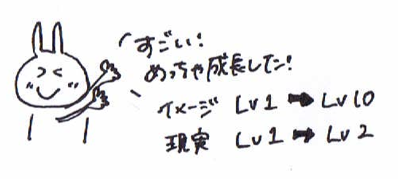 すごい!
めっちゃ成長してン!
イメージ Lv1 ➡ Lv10
現実 Lv1 ➡ Lv2